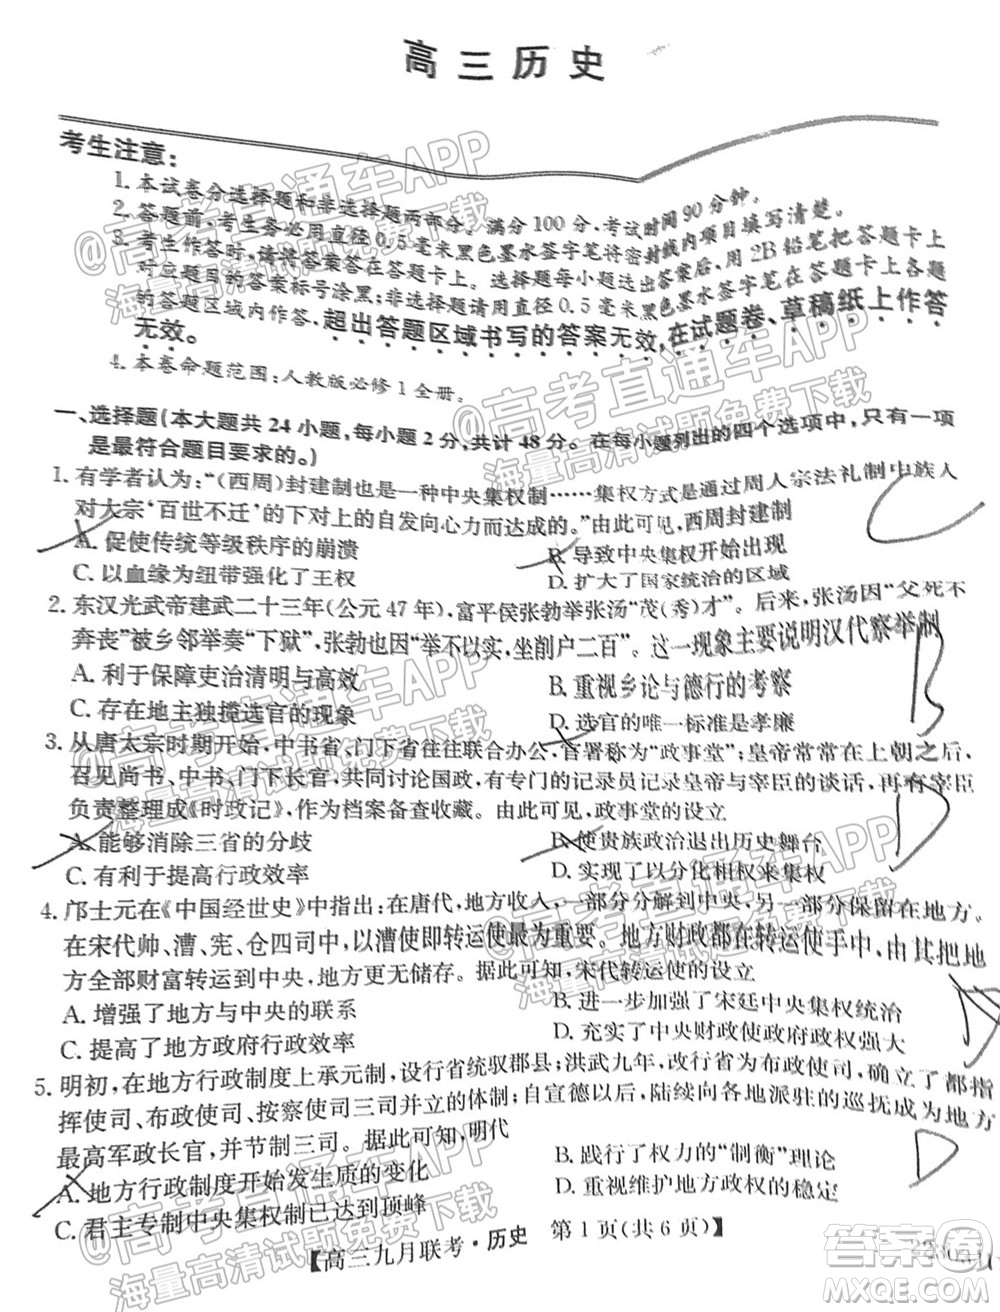 高三历史
考生注意:
1. 本试卷分选择题和非选择题两部分。满分100分,考试时间90分钟。
2. 答题前,考生务必用直径0.5毫米黑色墨水签字笔将密封线内项目填写清楚。
3. 考生作答时,请将答案答在答题卡上。选择题每小题选出答案后,用2B铅笔把答题卡上
对应题目的答案标号涂黑;非选择题请用直径0.5毫米黑色墨水签字笔在答题卡上各题
的答题区域内作答,超出答题区域书写的答案无效,在试题卷、草稿纸上作答
无效。
4. 本卷命题范围:人教版必修1全册。
一、选择题(本大题共24小题,每小题2分,共计48分。在每小题列出的四个选项中,只有一项
是最符合题目要求的。)
1. 有学者认为:“(西周)封建制也是一种中央集权制……集权方式是通过周人宗法礼制中族人
对大宗‘百世不迁’的下对上的自发向心力而达成的。”由此可见,西周封建制
A. 促使传统等级秩序的崩溃 B. 导致中央集权开始出现
C. 以血缘为纽带强化了王权 D. 扩大了国家统治的区域
2. 东汉光武帝建武二十三年(公元47年),富平侯张勃举张汤“茂(秀)才”。后来,张汤因“父死不
奔丧”被乡邻举奏“下狱”,张勃也因“举不以实,坐削户二百”。这一现象主要说明汉代察举制
A. 利于保障吏治清明与高效 B. 重视乡论与德行的考察
C. 存在地主独揽选官的现象 D. 选官的唯一标准是孝廉
3. 从唐太宗时期开始,中书省、门下省往往联合办公,官署称为“政事堂”;皇帝常常在上朝之后,
召见尚书、中书、门下长官,共同讨论国政,有专门的记录员记录皇帝与宰臣的谈话,再有宰臣
负责整理成《时政记》,作为档案备查收藏。由此可见,政事堂的设立
A. 能够消除三省的分歧 B. 使贵族政治退出历史舞台
C. 有利于提高行政效率 D. 实现了以分化相权加强皇权
4. 邝士元在《中国经世史》中指出:在唐代,一部分分解到中央,一部分保留在地方。
在宋代帅、漕、宪、仓四司中,以漕使即转运使最为重要。地方财政都在转运使手中,由其把地
方全部财富转运到中央,地方更无储存。据此可知,宋代转运使的设立
A. 增强了地方与中央的联系 B. 进一步加强了宋廷中央集权统治
C. 提高了地方政府行政效率 D. 充实了中央财政使政府政权强大
5. 明初,在地方行政制度上承元制,设行省统驭郡县;洪武九年,改行省为三司,设立了都指
挥使司、布政使司、按察使司三司共同主政的体制;自宣德以后,陆续向各地派驻的巡抚成为地方
最高军政长官,并节制三司。据此可知,明代
A. 地方行政制度开始发生质的变化 B. 践行了权力的“制衡”理论
C. 君主专制中央集权制达到顶峰 D. 重视维护地方政权的稳定
【高三九月联考·历史 第1页(共6页)】
C
B
D
D
D
@高考直通车APP
海量高清试题免费下载
@高考直通车APP
海量高清试题免费下载
答案圈
MXQE.COM